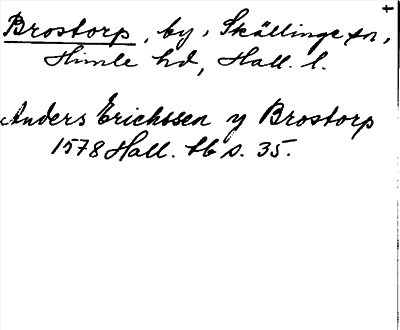 Brostorp, by, Skällinge sn,
Himle hd, Hall. l.
Anders Erichssen y Brostorp
1578 Hall. tb s. 35.